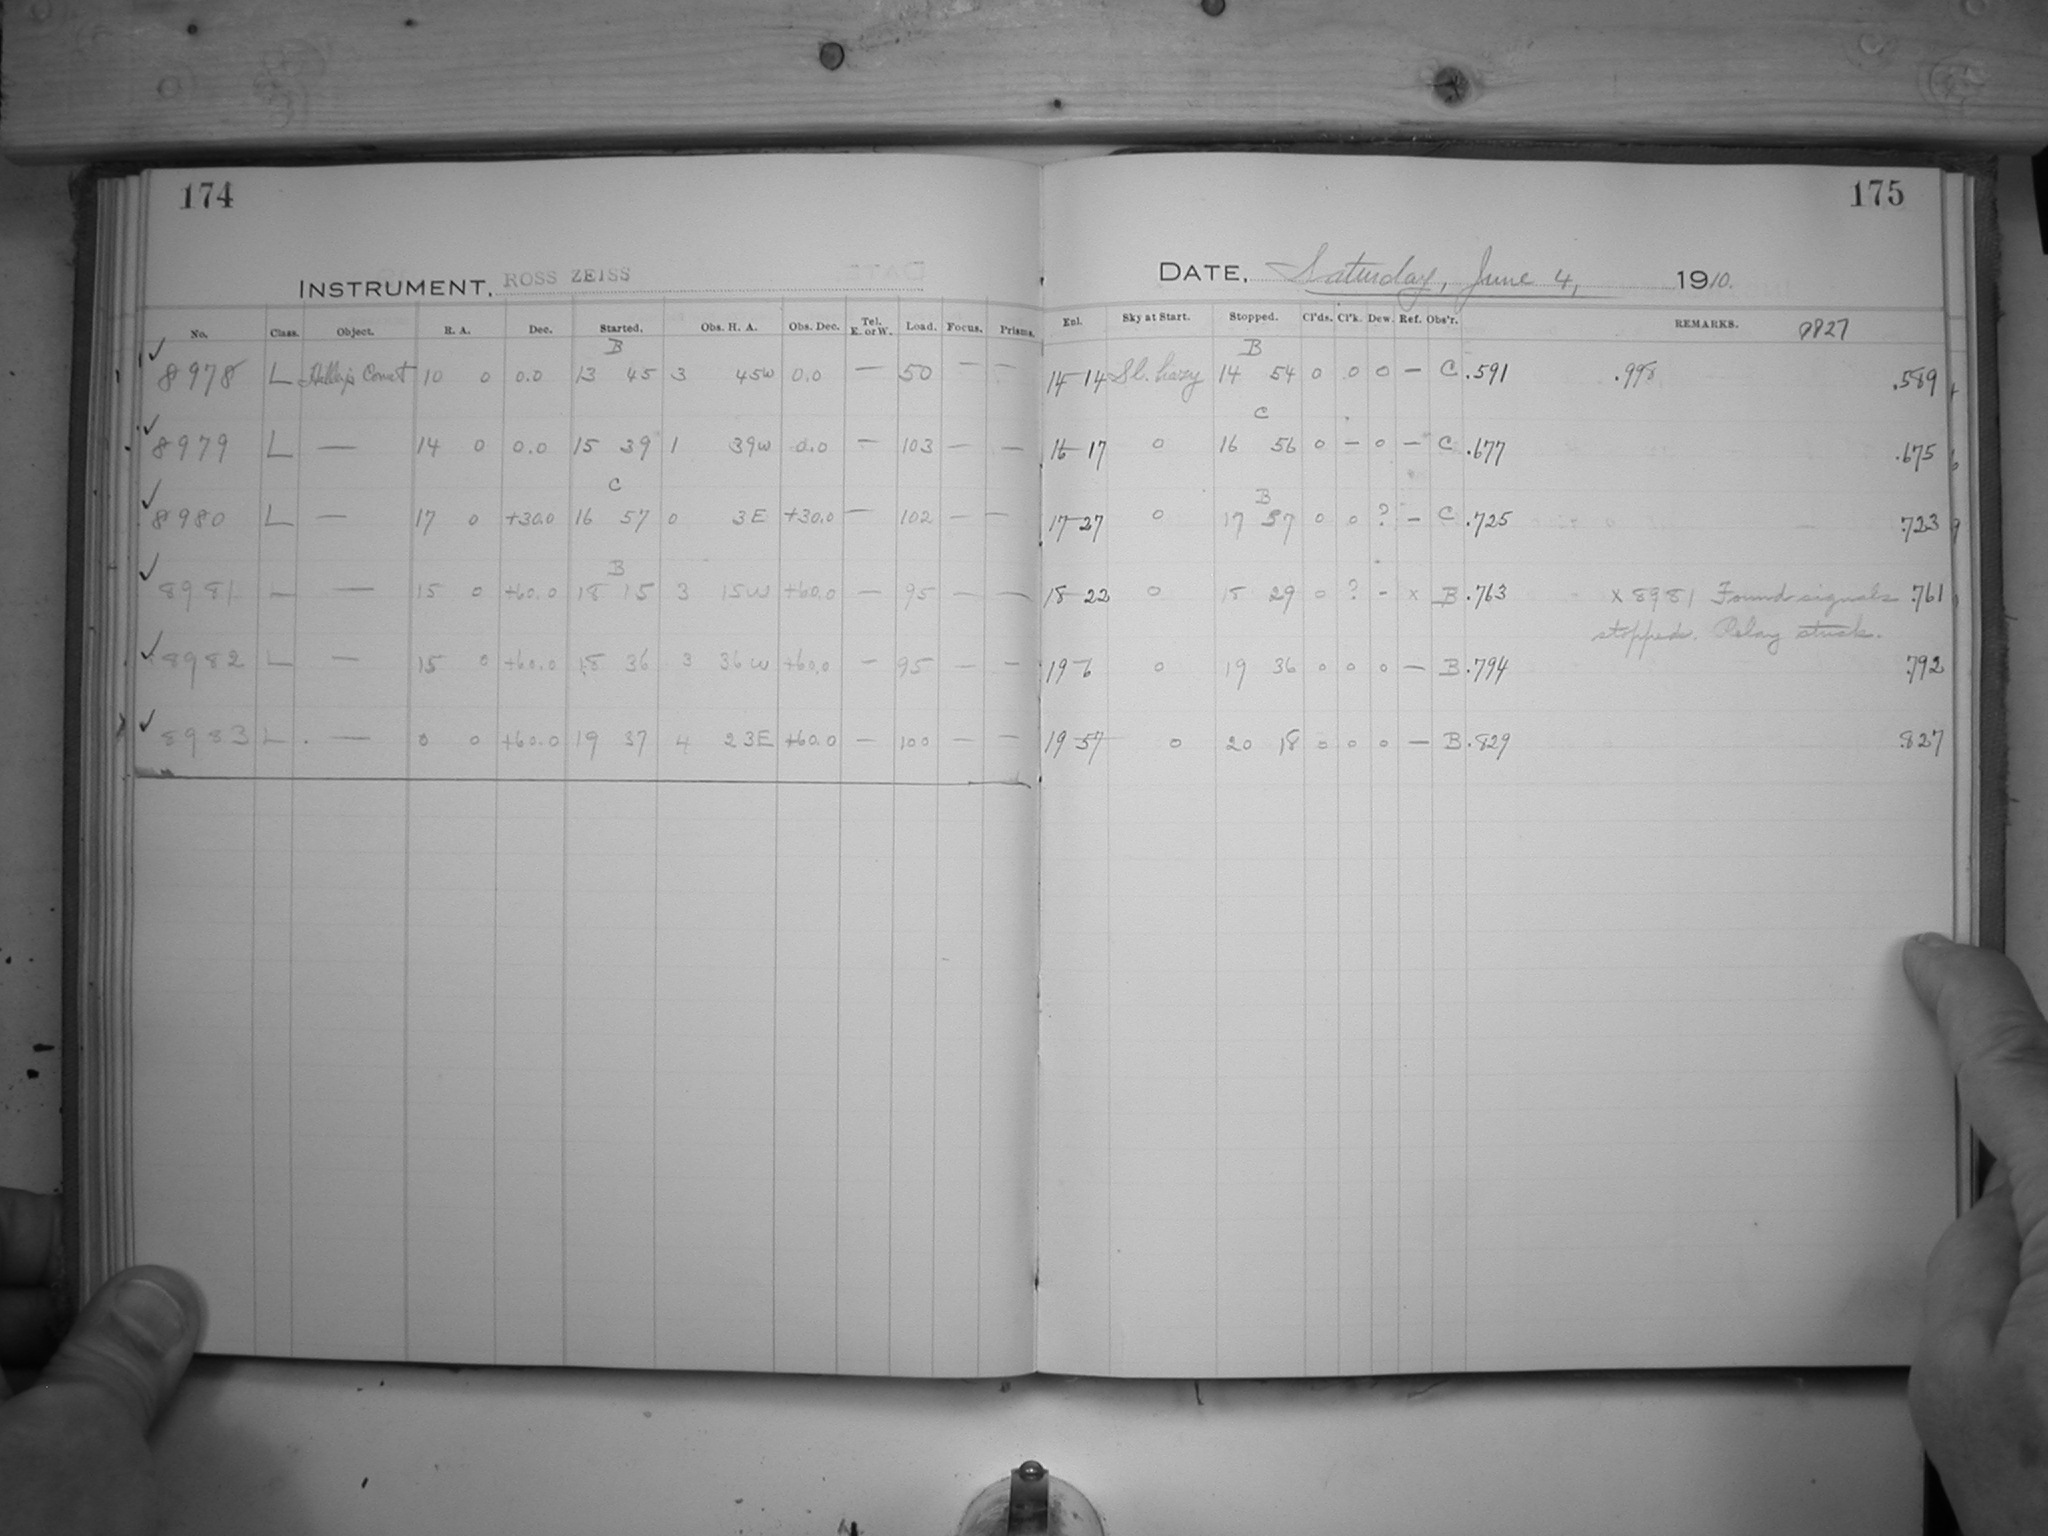 174
INSTRUMENT. ROSS ZEISS
No. Class. Object. R. A. Dec. Started. Obs. H. A. Obs. Dec. Tel. E. or W. Load. Focus. Prisms.
B
8978 L Halley's Comet 10 0 0.0 13 45 3 45W 0.0 — 50 — —
8979 L — 14 0 0.0 15 39 1 39W 0.0 — 103 — —
C
8980 L — 17 0 +30.0 16 57 0 3E +30.0 — 102 — —
B
8981 — — 15 0 +60.0 18 15 3 15W +60.0 — 95 — —
8982 L — 15 0 +60.0 18 36 3 36W +60.0 — 95 — —
8983 L — 0 0 +60.0 19 37 4 23E +60.0 — 100 — —
175
DATE, Saturday, June 4, 1910.
Enl. Sky at Start. Stopped. Cl'ds. Cl'k. Dew. Ref. Obs'r. REMARKS. 0827
B
14-14 Sl. hazy 14 54 0 0 0 — C .591 .998 .589
C
16-17 0 16 56 0 — 0 — C .677 .675
B
17-27 0 17 57 0 0 ? — C .725 .723
18-22 0 18 29 0 ? - x B .763 x 8981 Found signals .761
stopped. Relay stuck.
19-6 0 19 36 0 0 0 — B .794 .792
19-57 0 20 18 0 0 0 — B .829 .827